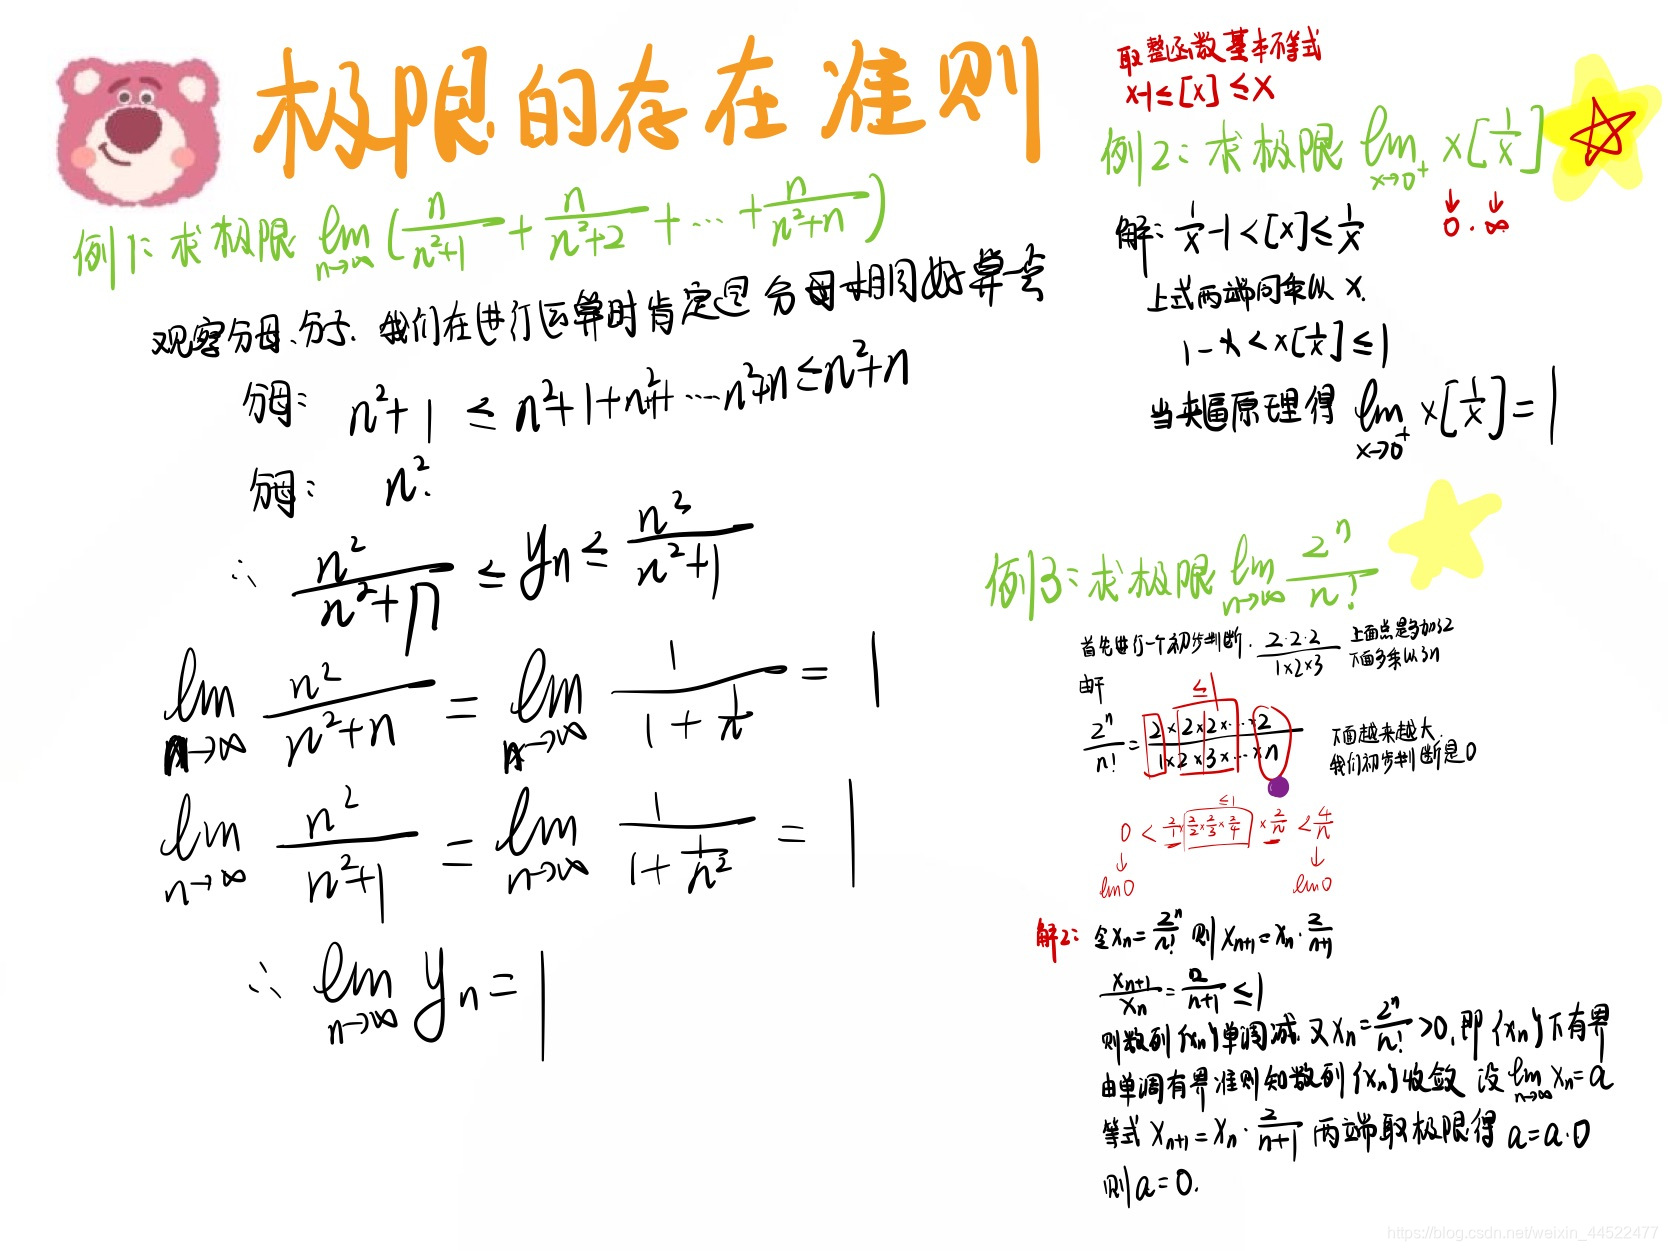 极限的存在准则
例1: 求极限 lim n→∞ (n/(n²+1) + n/(n²+2) + … + n/(n²+n))
观察分母、分子. 我们在进行运算时肯定是分母相同好算一些
分母: n²+1 ≤ n²+1+n²+ … n²+n ≤ n²+n
n².
∴ n²/(n²+n) ≤ yn ≤ n²/(n²+1)
lim n→∞ n²/(n²+n) = lim n→∞ 1/(1+1/n) = 1
lim n→∞ n²/(n²+1) = lim n→∞ 1/(1+1/n²) = 1
∴ lim n→∞ yn = 1
取整函数基本不等式
x-1≤[x]≤x
例2: 求极限 lim x→0⁺ x[1/x]
↓ ↓
0 · ∞
解: 1/x - 1 < [x] ≤ 1/x
上式两端同乘以 x.
1-x < x[1/x] ≤ 1
当夹逼原理得 lim x→0⁺ x[1/x] = 1
例3: 求极限 lim n→∞ 2ⁿ/n!
首先进行一个初步判断. 2·2·2/1×2×3
上面点是多加以2
下面多乘以3n
由于
≤1
2ⁿ/n! = 2×2×2×…×2/1×2×3×…×n
下面越来越大.
我们初步判断是0
≤1
0 < 2/1×2/2×2/3×2/4 × 2/n < 4/n
↓ ↓
lim0 lim0
解2: 令xn = 2ⁿ/n! 则 xn+1 = xn · 2/(n+1)
xn+1/xn = 2/(n+1) ≤ 1
则数列{xn}单调减. 又xn = 2ⁿ/n! >0, 即{xn}下有界
由单调有界准则知数列{xn}收敛 设 lim n→∞ xn = a
等式 xn+1 = xn · 2/(n+1) 两端取极限得 a = a·0
则 a = 0.
https://blog.csdn.net/weixin_44522477